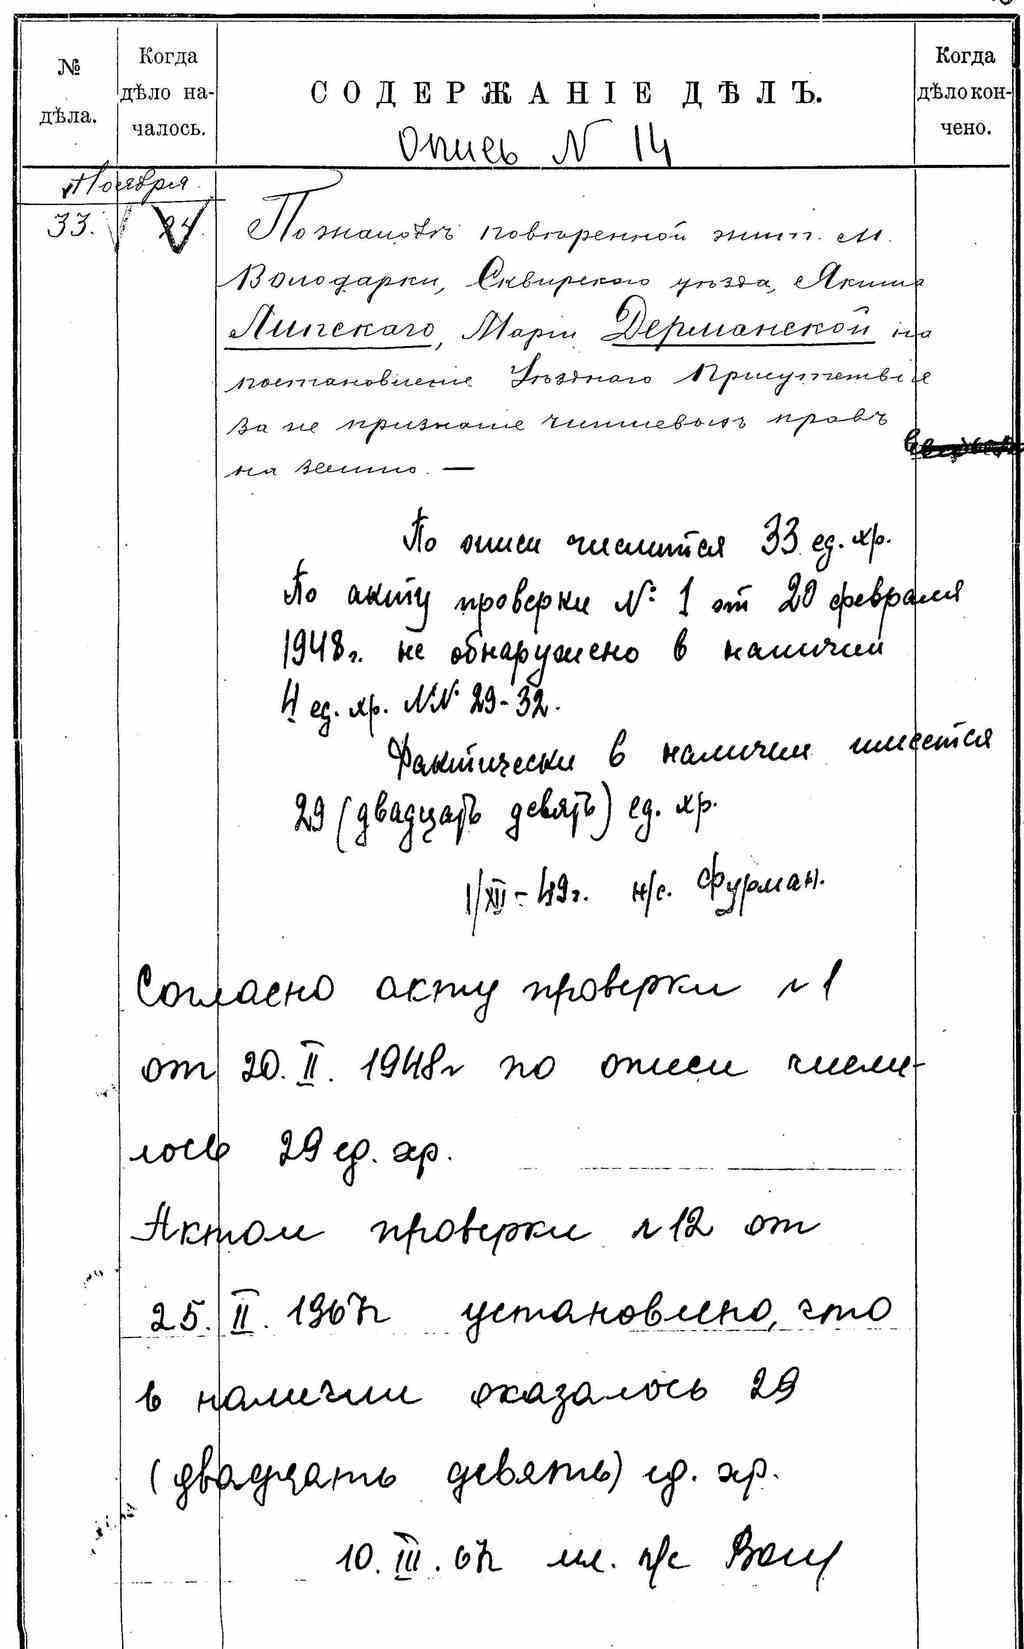 № дѣла.
Когда дѣло на-
чалось.
СОДЕРЖАНІЕ ДѢЛЪ.
Когда дѣло кон-
чено.
Опись N 14
Ноября
33. 24.
По жалобѣ повѣренной жит. м.
Володарки, Сквирскаго уѣзда, Якима
Липскаго, Маріи Дерманской на
постановленіе Уѣзднаго Присутствія
за не признаніе чиншевыхъ правъ
на землю. —
По описи числится 33 ед. хр.
По акту проверки №: 1 от 20 февраля
1948г. не обнаружено в наличии
4 ед. хр. NN: 29-32.
Фактически в наличии имеется
29 (двадцать девять) ед. хр.
1/XII-49г. н/с. Фурман.
Согласно акту проверки № 1
от 20. II. 1948г по описи числи-
лось 29 ед. хр.
Актом проверки № 12 от
25. II. 1967г установлено, что
в наличии оказалось 29
(двадцать девять) ед. хр.
10. III. 67г мл. н/с